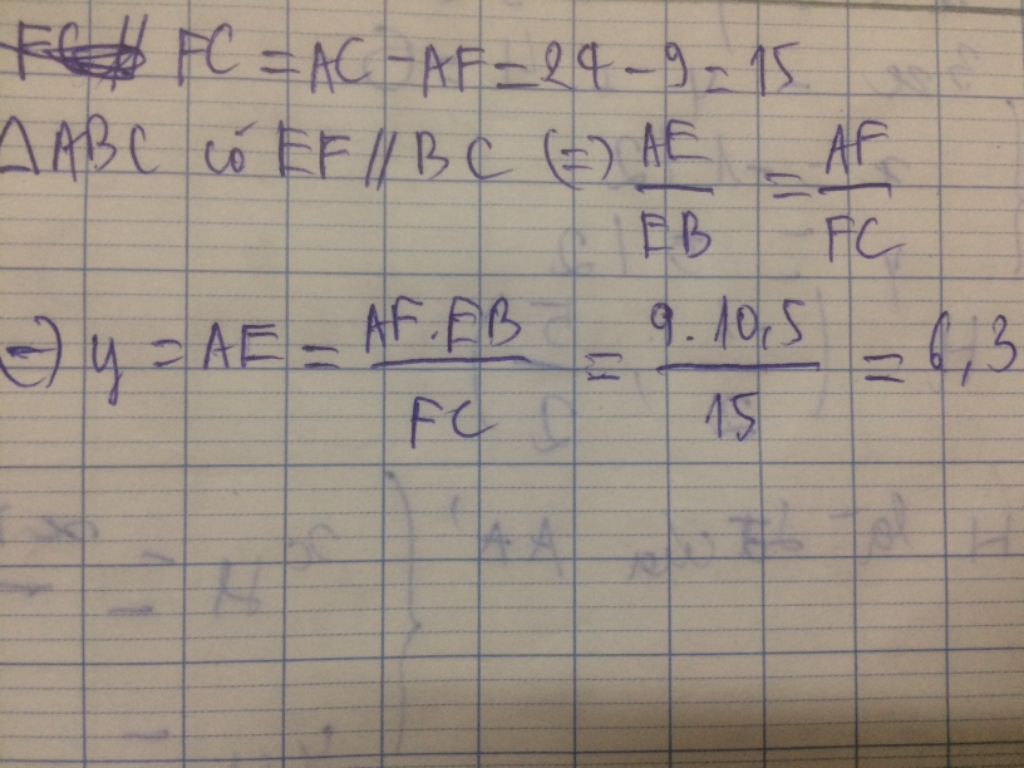 FC = AC - AF = 24 - 9 = 15
△ABC có EF // BC (=) AE/EB = AF/FC
=) y = AE = AF.EB/FC = 9.10,5/15 = 6,3